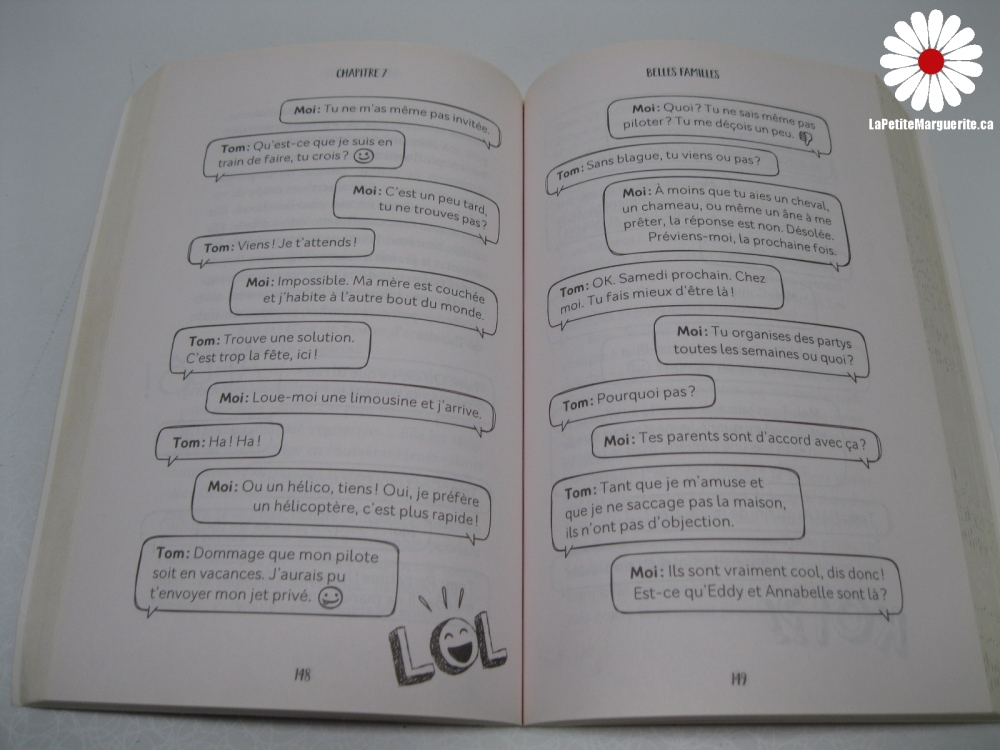 CHAPITRE 7
Moi : Tu ne m'as même pas invitée.
Tom : Qu'est-ce que je suis en
train de faire, tu crois ?
Moi : C'est un peu tard,
tu ne trouves pas ?
Tom : Viens ! Je t'attends !
Moi : Impossible. Ma mère est couchée
et j'habite à l'autre bout du monde.
Tom : Trouve une solution.
C'est trop la fête, ici !
Moi : Loue-moi une limousine et j'arrive.
Tom : Ha ! Ha !
Moi : Ou un hélico, tiens ! Oui, je préfère
un hélicoptère, c'est plus rapide !
Tom : Dommage que mon pilote
soit en vacances. J'aurais pu
t'envoyer mon jet privé.
LOL
148
BELLES FAMILLES
Moi : Quoi ? Tu ne sais même pas
piloter ? Tu me déçois un peu.
Tom : Sans blague, tu viens ou pas ?
Moi : À moins que tu aies un cheval,
un chameau, ou même un âne à me
prêter, la réponse est non. Désolée.
Préviens-moi, la prochaine fois.
Tom : OK. Samedi prochain. Chez
moi. Tu fais mieux d'être là !
Moi : Tu organises des partys
toutes les semaines ou quoi ?
Tom : Pourquoi pas ?
Moi : Tes parents sont d'accord avec ça ?
Tom : Tant que je m'amuse et
que je ne saccage pas la maison,
ils n'ont pas d'objection.
Moi : Ils sont vraiment cool, dis donc !
Est-ce qu'Eddy et Annabelle sont là ?
149
LaPetiteMarguerite.ca